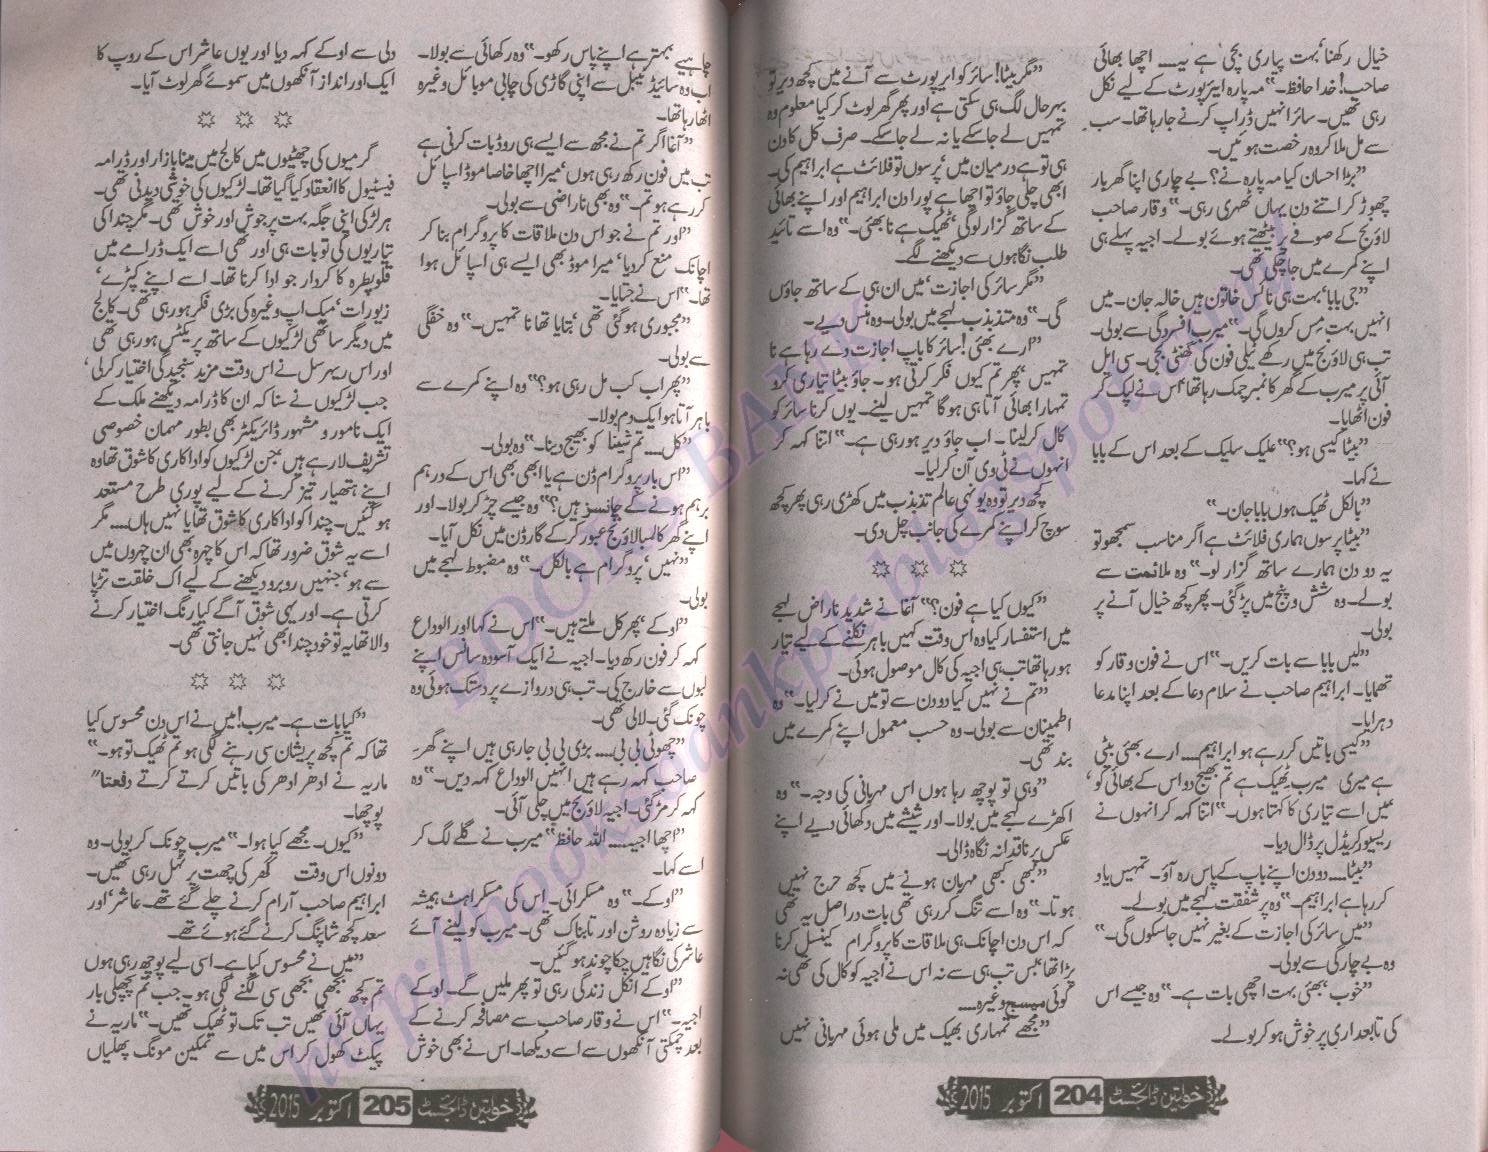 خیال رکھنا‘ بہت پیاری بچی ہے یہ.... اچھا بھائی
صاحب! خدا حافظ۔“ مہ پارہ ایئرپورٹ کے لیے نکل
رہی تھیں۔ سائر انہیں ڈراپ کرنے جا رہا تھا۔ سب
سے مل ملا کر وہ رخصت ہوئیں۔
”بڑا احسان کیا مہ پارہ نے؟ بے چاری اپنا گھر بار
چھوڑ کر اتنے دن یہاں ٹھہری رہی۔“ وقار صاحب
لاؤنج کے صوفے پر بیٹھتے ہوئے بولے۔ اجیہ پہلے ہی
اپنے کمرے میں جا چکی تھی۔
”جی بابا‘ بہت ہی نائس خاتون ہیں خالہ جان۔ میں
انہیں بہت مس کروں گی۔“ میرب افسردگی سے بولی۔
تب ہی لاؤنج میں رکھے ٹیلی فون کی گھنٹی بجی۔ سی ایل
آئی پر میرب کے گھر کا نمبر چمک رہا تھا‘ اس نے لپک کر
فون اٹھایا۔
”بیٹا کیسی ہو؟“ علیک سلیک کے بعد اس کے بابا
نے کہا۔
”بالکل ٹھیک ہوں بابا جان۔“
”بیٹا پرسوں ہماری فلائٹ ہے اگر مناسب سمجھو تو
یہ دو دن ہمارے ساتھ گزار لو۔“ وہ ملائمت سے
بولے۔ وہ شش و پنج میں پڑ گئی۔ پھر کچھ خیال آنے پر
بولی۔
”لیں بابا سے بات کریں۔“ اس نے فون وقار کو
تھمایا۔ ابراہیم صاحب نے سلام دعا کے بعد اپنا مدعا
دہرایا۔
”کیسی باتیں کر رہے ہو ابراہیم.... ارے بھئی بیٹی
ہے میری میرب ٹھیک ہے تم بھیج دو اس کے بھائی کو‘
میں اسے تیاری کا کہتا ہوں۔“ اتنا کہہ کر انہوں نے
ریسیور کریڈل پر ڈال دیا۔
”بیٹا.... دو دن اپنے باپ کے پاس رہ آؤ۔ تمہیں یاد
کر رہا ہے ابراہیم۔“ وہ پر شفقت لہجے میں بولے۔
”میں سائر کی اجازت کے بغیر نہیں جا سکوں گی۔“
وہ بے چارگی سے بولی۔
”خوب‘ بھئی بہت اچھی بات ہے۔“ وہ جیسے اس
کی تابعداری پر خوش ہو کر بولے۔
”مگر بیٹا! سائر کو ایرپورٹ سے آنے میں کچھ دیر تو
بہرحال لگ ہی سکتی ہے اور پھر گھر لوٹ کر کیا معلوم وہ
تمہیں لے جا سکے یا نہ لے جا سکے۔ صرف کل کا دن
ہی تو ہے درمیان میں‘ پرسوں تو فلائٹ ہے ابراہیم کی۔
ابھی چلی جاؤ تو اچھا ہے پورا دن ابراہیم اور اپنے بھائی
کے ساتھ گزار لوگی‘ ٹھیک ہے نا بھئی۔“ وہ اسے تائید
طلب نگاہوں سے دیکھنے لگے۔
”مگر سائر کی اجازت‘ میں ان ہی کے ساتھ جاؤں
گی۔“ وہ متذبذب لہجے میں بولی۔ وہ ہنس دیے۔
”ارے بھئی! سائر کا باپ اجازت دے رہا ہے نا
تمہیں‘ پھر تم کیوں فکر کرتی ہو۔ جاؤ بیٹا تیاری کرو
تمہارا بھائی آتا ہی ہوگا تمہیں لینے۔ یوں کرنا سائر کو
کال کر لینا۔ اب جاؤ دیر ہو رہی ہے۔“ اتنا کہہ کر
انہوں نے ٹی وی آن کر لیا۔
کچھ دیر تو وہ یونہی عالم تذبذب میں کھڑی رہی پھر کچھ
سوچ کر اپنے کمرے کی جانب چل دی۔
☆ ☆ ☆
”کیوں کیا ہے فون؟“ آغا نے شدید ناراض لہجے
میں استفسار کیا وہ اس وقت کہیں باہر نکلنے کے لیے تیار
ہو رہا تھا تب ہی اجیہ کی کال موصول ہوئی۔
”تم نے نہیں کیا دو دن سے تو میں نے کر لیا۔“ وہ
اطمینان سے بولی۔ وہ حسب معمول اپنے کمرے میں
بند تھی۔
”وہی تو پوچھ رہا ہوں اس مہربانی کی وجہ۔“ وہ
اکھڑے لہجے میں بولا۔ اور شیشے میں دکھائی دیے اپنے
عکس پر ناقدانہ نگاہ ڈالی۔
”کبھی کبھی مہربان ہونے میں کچھ حرج نہیں
ہوتا۔“ وہ اسے تنگ کر رہی تھی بات دراصل یہ تھی
کہ اس دن اچانک ہی ملاقات کا پروگرام کینسل کرنا
پڑا تھا‘ بس تب ہی سے نہ اس نے اجیہ کو کال کی تھی نہ
کوئی میسج وغیرہ....
”مجھے تمہاری بھیک میں ملی ہوئی مہربانی نہیں
خواتین ڈائجسٹ 204 اکتوبر 2015
چاہیے بہتر ہے اپنے پاس رکھو۔“ وہ رکھائی سے بولا۔
اب وہ سائیڈ ٹیبل سے اپنی گاڑی کی چابی موبائل وغیرہ
اٹھا رہا تھا۔
”آغا اگر تم نے مجھ سے ایسے ہی روڈ بات کرنی ہے
تب میں فون رکھ رہی ہوں‘ میرا اچھا خاصا موڈ اسپائل
کر رہے ہو تم۔“ وہ بھی ناراضی سے بولی۔
”اور تم نے جو اس دن ملاقات کا پروگرام بنا کر
اچانک منع کر دیا‘ میرا موڈ بھی ایسے ہی اسپائل ہوا
تھا۔“ اس نے جتایا۔
”مجبوری ہو گئی تھی‘ بتایا تھا نا تمہیں۔“ وہ خفگی
سے بولی۔
”پھر اب کب مل رہی ہو؟“ وہ اپنے کمرے سے
باہر آتا ہوا ایک دم بولا۔
”کل.... تم شیفا کو بھیج دینا۔“ وہ بولی۔
”اس بار پروگرام ڈن ہے یا ابھی بھی اس کے درہم
برہم ہونے کے چانسز ہیں؟“ وہ جیسے چڑ کر بولا۔ اور
اپنے گھر کا لمبا لاؤنج عبور کر کے گارڈن میں نکل آیا۔
”نہیں‘ پروگرام ہے بالکل۔“ وہ مضبوط لہجے میں
بولی۔
”اوکے‘ پھر کل ملتے ہیں۔“ اس نے کہا اور الوداع
کہہ کر فون رکھ دیا۔ اجیہ نے ایک آسودہ سانس اپنے
لبوں سے خارج کی۔ تب ہی دروازے پر دستک ہوئی وہ
چونک گئی۔ لالی تھی۔
”چھوٹی بی بی.... بڑی بی بی جا رہی ہیں اپنے گھر۔
صاحب کہہ رہے ہیں انہیں الوداع کہہ دیں۔“ وہ
کہہ کر مڑ گئی۔ اجیہ لاؤنج میں چلی آئی۔
”اچھا اجیہ.... اللہ حافظ“ میرب نے گلے لگ کر
اسے کہا۔
”اوکے۔“ وہ مسکرائی۔ اس کی مسکراہٹ ہمیشہ
سے زیادہ روشن اور تابناک تھی۔ میرب کو لینے آئے
عاشر کی نگاہیں چکاچوند ہو گئیں۔
”اوکے انکل زندگی رہی تو پھر ملیں گے۔ اوکے
اجیہ۔“ اس نے وقار صاحب سے مصافحہ کرنے کے
بعد چمکتی آنکھوں سے اسے دیکھا۔ اس نے بھی خوش
دلی سے اوکے کہہ دیا اور یوں عاشر اس کے روپ کا
ایک اور انداز آنکھوں میں سموئے گھر لوٹ آیا۔
☆ ☆ ☆
گرمیوں کی چھٹیوں میں کالج میں مینا بازار اور ڈرامہ
فیسٹیول کا انعقاد کیا گیا تھا۔ لڑکیوں کی خوشی دیدنی تھی۔
ہر لڑکی اپنی جگہ بہت پرجوش اور خوش تھی۔ مگر چندا کی
تیاریوں کی تو بات ہی اور تھی اسے ایک ڈرامے میں
قلوپطرہ کا کردار جو ادا کرنا تھا۔ اسے اپنے کپڑے‘
زیورات‘ میک اپ وغیرہ کی بڑی فکر ہو رہی تھی۔ کالج
میں دیگر ساتھی لڑکیوں کے ساتھ پریکٹس ہو رہی تھی
اور اس ریہرسل نے اس وقت مزید سنجیدگی اختیار کر لی‘
جب لڑکیوں نے سنا کہ ان کا ڈرامہ دیکھنے ملک کے
ایک نامور و مشہور ڈائریکٹر بھی بطور مہمان خصوصی
تشریف لا رہے ہیں‘ جن لڑکیوں کو اداکاری کا شوق تھا وہ
اپنے ہتھیار تیز کرنے کے لیے پوری طرح مستعد
ہو گئیں۔ چندا کو اداکاری کا شوق تھا یا نہیں ہاں.... مگر
اسے یہ شوق ضرور تھا کہ اس کا چہرہ بھی ان چہروں میں
سے ہو‘ جنہیں روبرو دیکھنے کے لیے اک خلقت تڑپا
کرتی ہے۔ اور یہی شوق آگے کیا رنگ اختیار کرنے
والا تھا یہ تو خود چندا بھی نہیں جانتی تھی۔
☆ ☆ ☆
”کیا بات ہے۔ میرب! میں نے اس دن محسوس کیا
تھا کہ تم کچھ پریشان سی رہنے لگی ہو تم ٹھیک تو ہو۔“
ماریہ نے ادھر ادھر کی باتیں کرتے کرتے دفعتا“
پوچھا۔
”کیوں۔ مجھے کیا ہوا۔“ میرب چونک کر بولی۔ وہ
دونوں اس وقت گھر کی چھت پر ٹہل رہی تھیں۔
ابراہیم صاحب آرام کرنے چلے گئے تھے۔ عاشر‘ اور
سعد کچھ شاپنگ کرنے گئے ہوئے تھے۔
”میں نے محسوس کیا ہے۔ اسی لیے پوچھ رہی ہوں
تم کچھ بجھی بجھی سی لگنے لگی ہو۔ جب تم پچھلی بار
یہاں آئی تھیں تب تک تو ٹھیک تھیں۔“ ماریہ نے
پیکٹ کھول کر اس میں سے نمکین مونگ پھلیاں
خواتین ڈائجسٹ 205 اکتوبر 2015